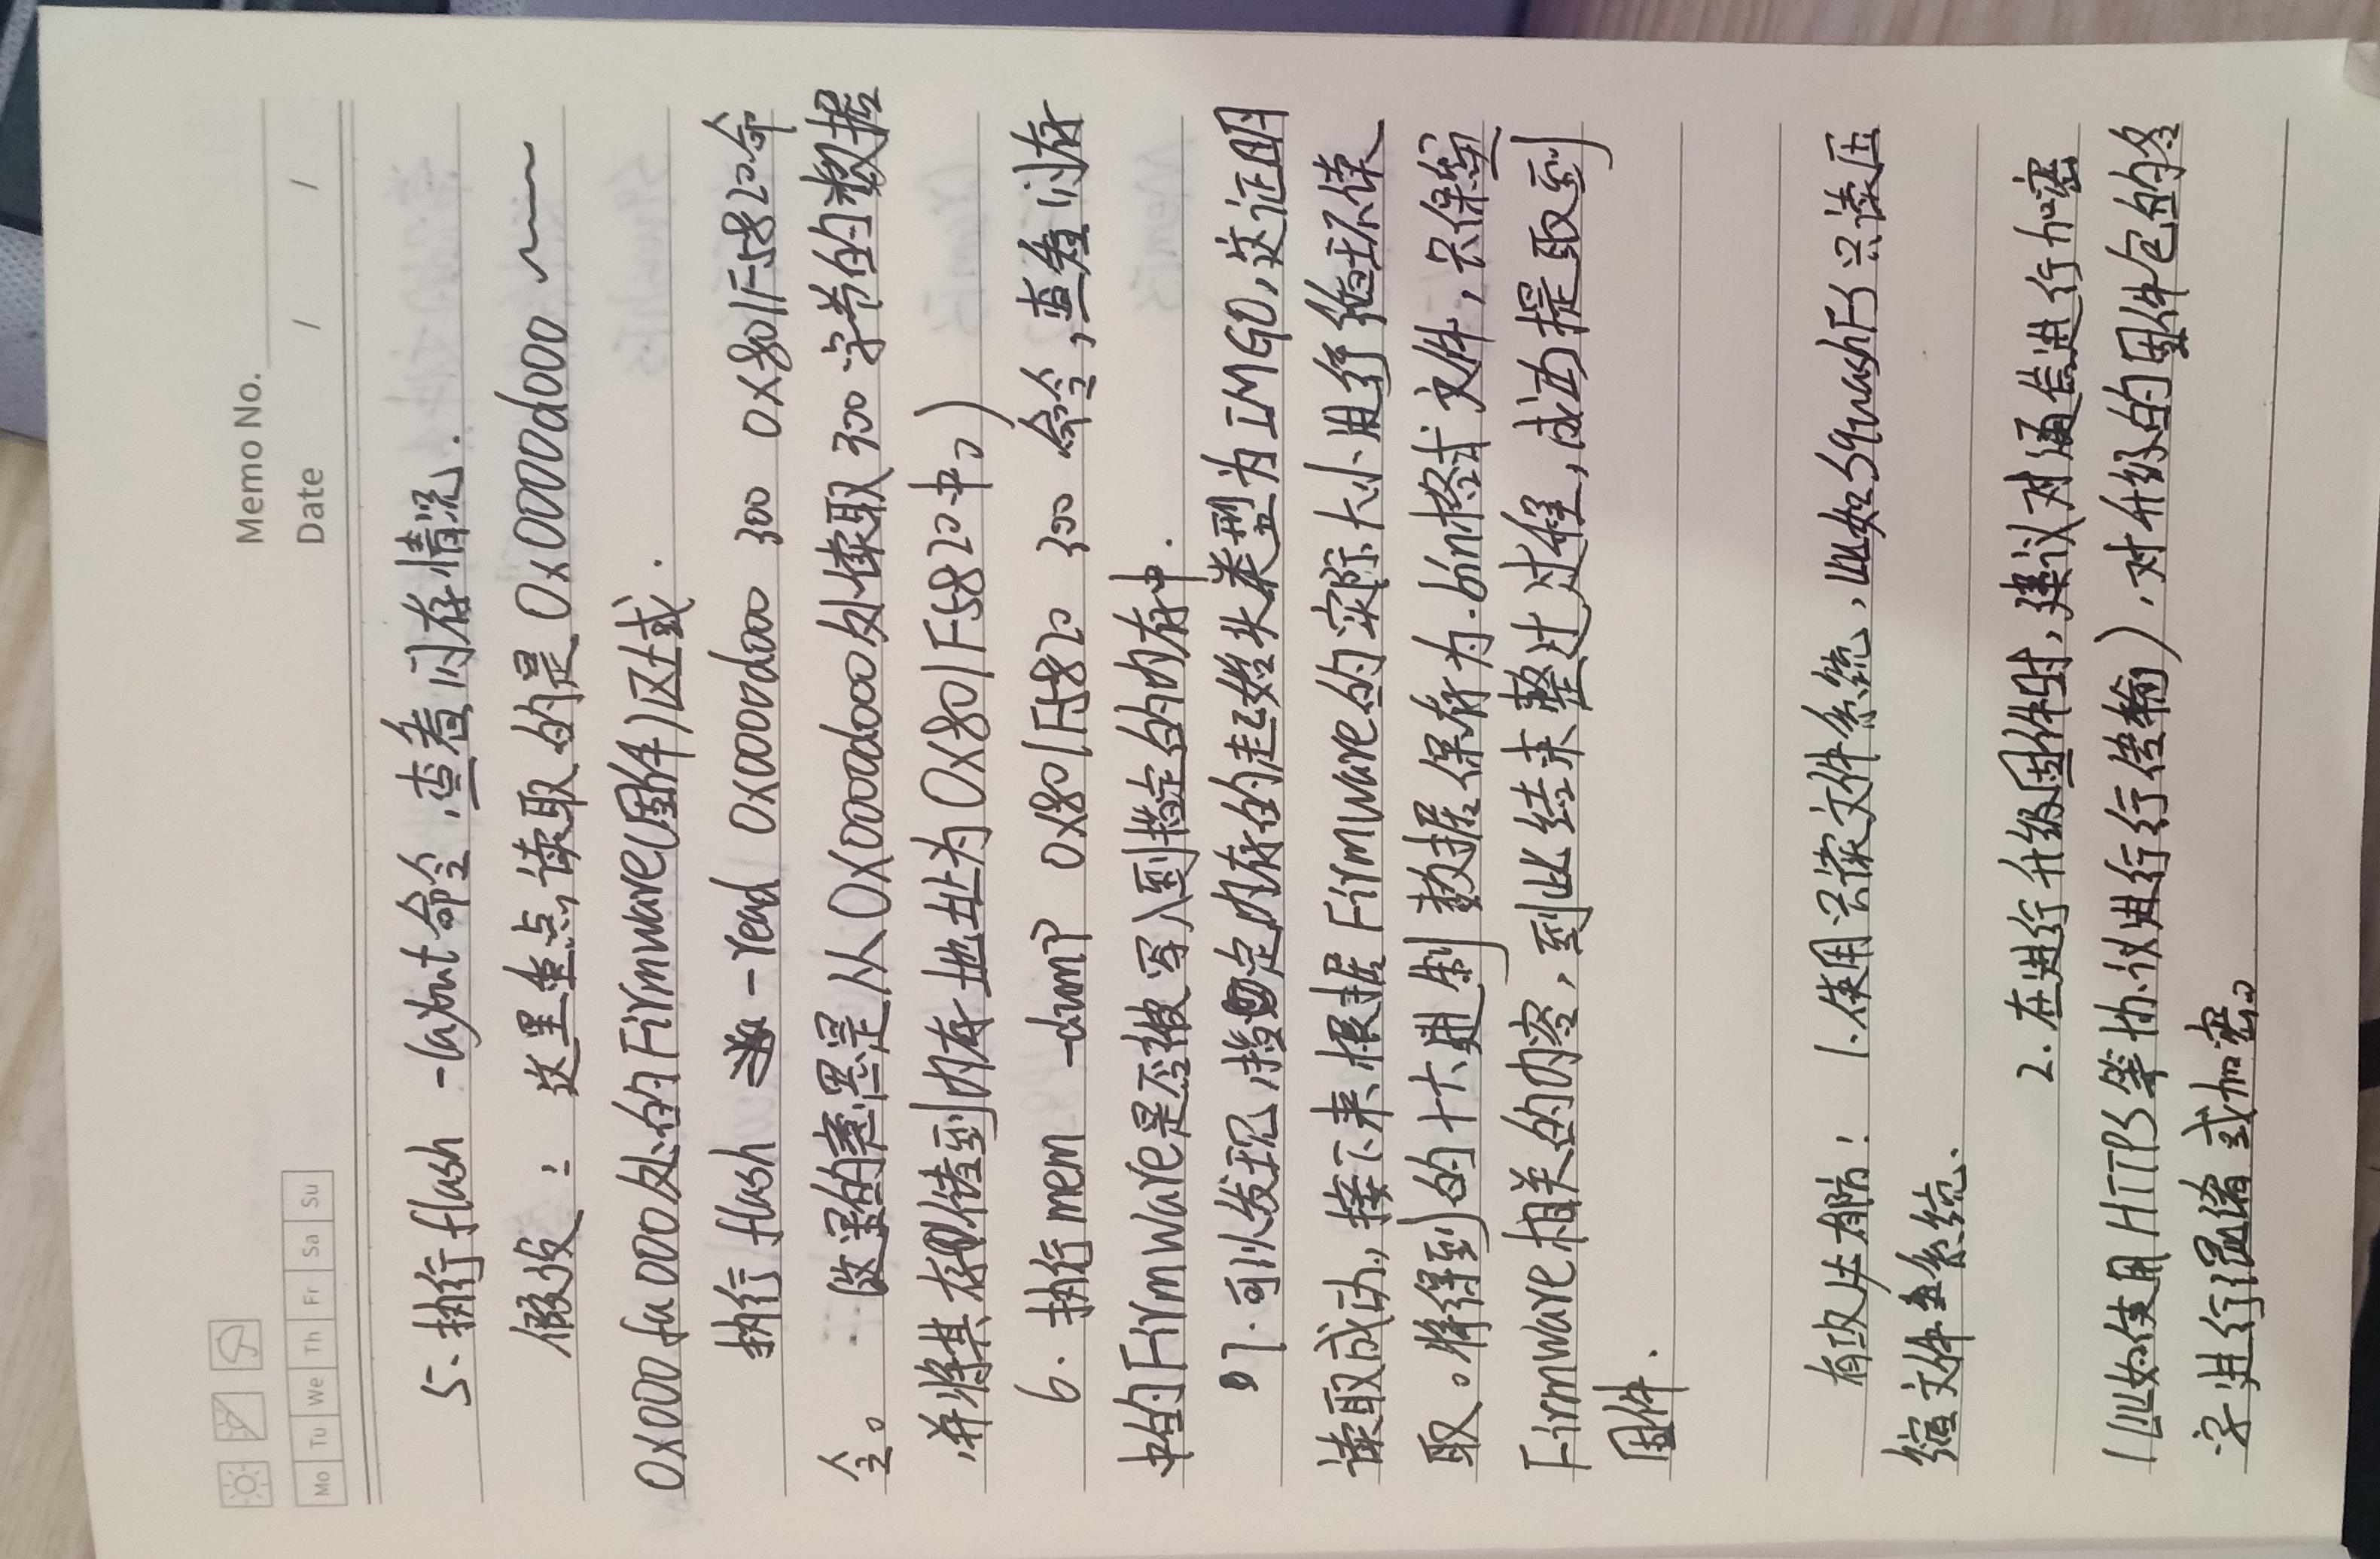 Memo No.
Mo Tu We Th Fr Sa Su
Date / /
5.执行flash -layout命令,查看闪存情况.
假设:这里重点读取的是0x0000d000 ~
0x000fa000处的Firmware(固件)区域.
执行flash -read 0x0000d000 300 0x801F5820命
令。这里的意思是从0x0000d000处读取300字节的数据
并将其存储到内存地址为0x801F5820中。)
6.执行mem -dump 0x801F5820 300 命令,查看闪存
中的Firmware是否被写入到指定的内存中.
7.可以发现指定内存的起始头类型为IMG0,这证明
读取成功,接下来根据Firmware的实际大小进行循环读
取。将得到的十六进制数据保存为.bin格式文件,只保留
Firmware相关的内容,到此结束整过过程,成功提取到
固件.
有攻必有防: 1.使用只读文件系统,比如SquashFS只读压
缩文件系统.
2.在进行升级固件时,建议对通信进行加密
(比如使用HTTPS等协议进行传输),对升级的固件包的名
字进行混淆或加密。